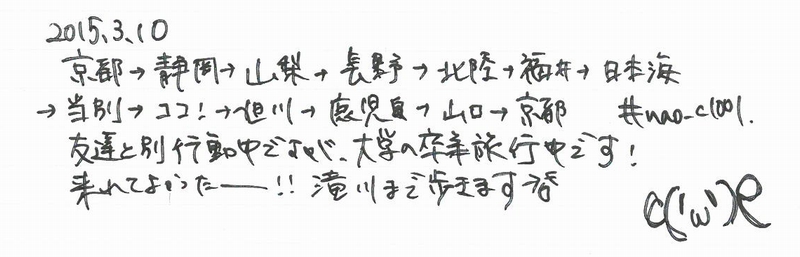 2015.3.10
京都→静岡→山梨→長野→北陸→福井→日本海
→当別→ココ!→旭川→鹿児島→山口→京都 #nao_c1001.
友達と別行動中ですが、大学の卒業旅行中です!
来れてよかったー!! 滝川まで歩きます
c('ω')e